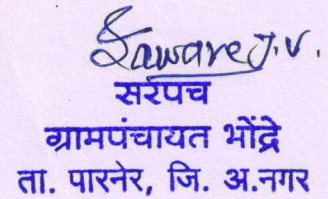 Saware J.V.
सरपंच
ग्रामपंचायत भोंद्रे
ता. पारनेर, जि. अ.नगर